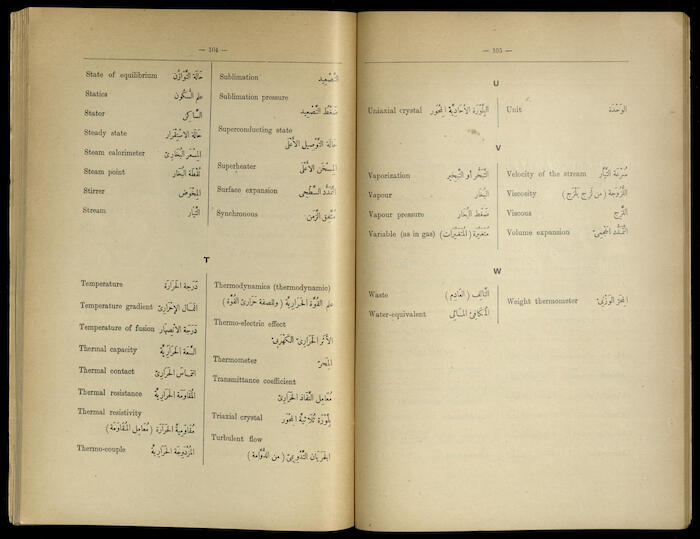 — 104 —
State of equilibrium حَالَة التَّوَازُن
Statics عِلم السُّكُون
Stater السَّاكِن
Steady state حَالَة الاِسْتِقْرَار
Steam calorimeter المِسْعَر البُخَارِىّ
Steam point نُقْطَة البُخَار
Stirrer المِخْوَض
Stream التَّيَّار
Sublimation التَّصْعِيد
Sublimation pressure
ضَغْط التَّصْعِيد
Superconducting state
حَالَة التَّوْصِيل الأَعْلَى
Superheater المِسْخَن الأَعْلَى
Surface expansion التَّمَدُّد السَّطْحِىّ
Synchronous مُتَّفِق الزَّمَن
T
Temperature دَرَجة الحَرَارَة
Temperature gradient
Temperature of fusion دَرَجة الاِنْصِهَار
Thermal capacity السَّعَة الحَرَارِيَّة
Thermal contact الحَرَارِىّ
Thermal resistance المُقَاوَمة الحَرَارِيَّة
Thermal resistivity
مُقَاوِمِيَّة الحَرَارَة ( مُعَامِل المُقَاوَمَة )
Thermo-couple المُزْدَوِجَة الحَرَارِيَّة
Thermodynamics (thermodynamic)
علم القُوَّة الحَرَارِيَّة ( وللصفة حَرَارِىّ القُوَّة )
Thermo-electric effect
الأَثَر الحَرَارِىّ الكَهْرَبِىّ
Thermometer المِحَرّ
Transmittance coefficient
مُعَامِل النَّفَاذ الحَرَارِىّ
Triaxial crystal بِلَّوْرَة ثُلَاثِيَّة المِحْوَر
Turbulent flow
الجَرَيَان التَّدْوِيمِىّ ( من الدَّوَّامَة )
— 105 —
U
Uniaxial crystal البِلَّوْرَة الأُحَادِيَّة المِحْوَر
Unit الوَحْدَة
V
Vaporization التَّبَخُّر أو التَّبْخِير
Vapour البُخَار
Vapour pressure ضَغْط البُخَار
Variable (as in gas) مُتَغَيِّرَة ( المُتَغَيِّرَات )
Velocity of the stream سُرْعَة التَّيَّار
Viscosity اللُّزُوجَة ( من لَزِج يَلْزَج )
Viscous اللَّزِج
Volume expansion التَّمَدُّد الحَجْمِىّ
W
Waste التَّالِف ( العَادِم )
Water-equivalent المُكَافِئ المَائِى
Weight thermometer المِحَرّ الوَزْنِىّ